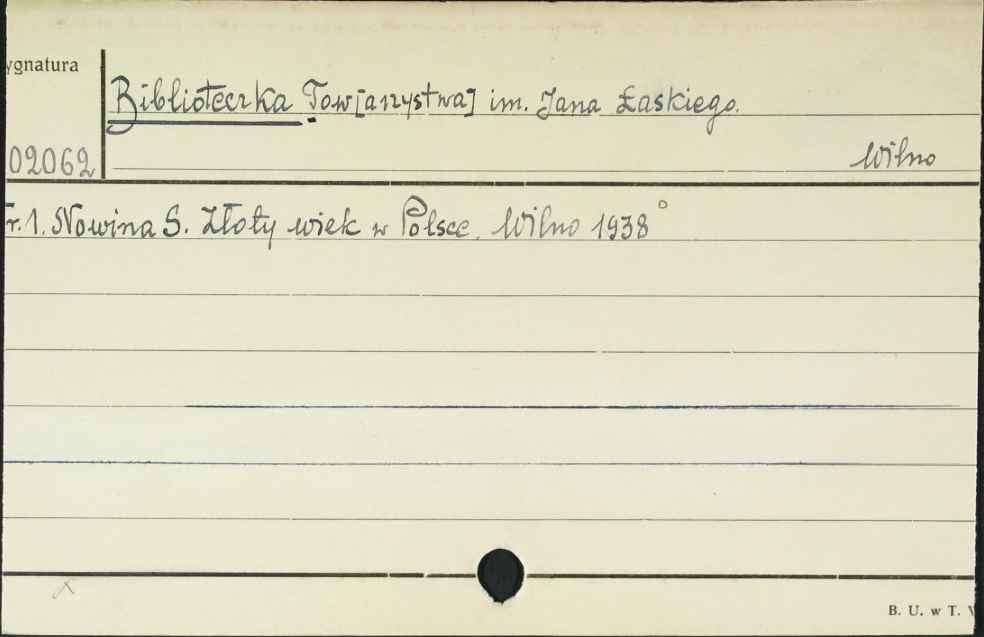 ygnatura
Biblioteczka Tow[arzystwa] im. Jana Łaskiego.
02062
Wilno
r. 1. Nowina S. Złoty wiek w Polsce. Wilno 1938
B. U. w T.